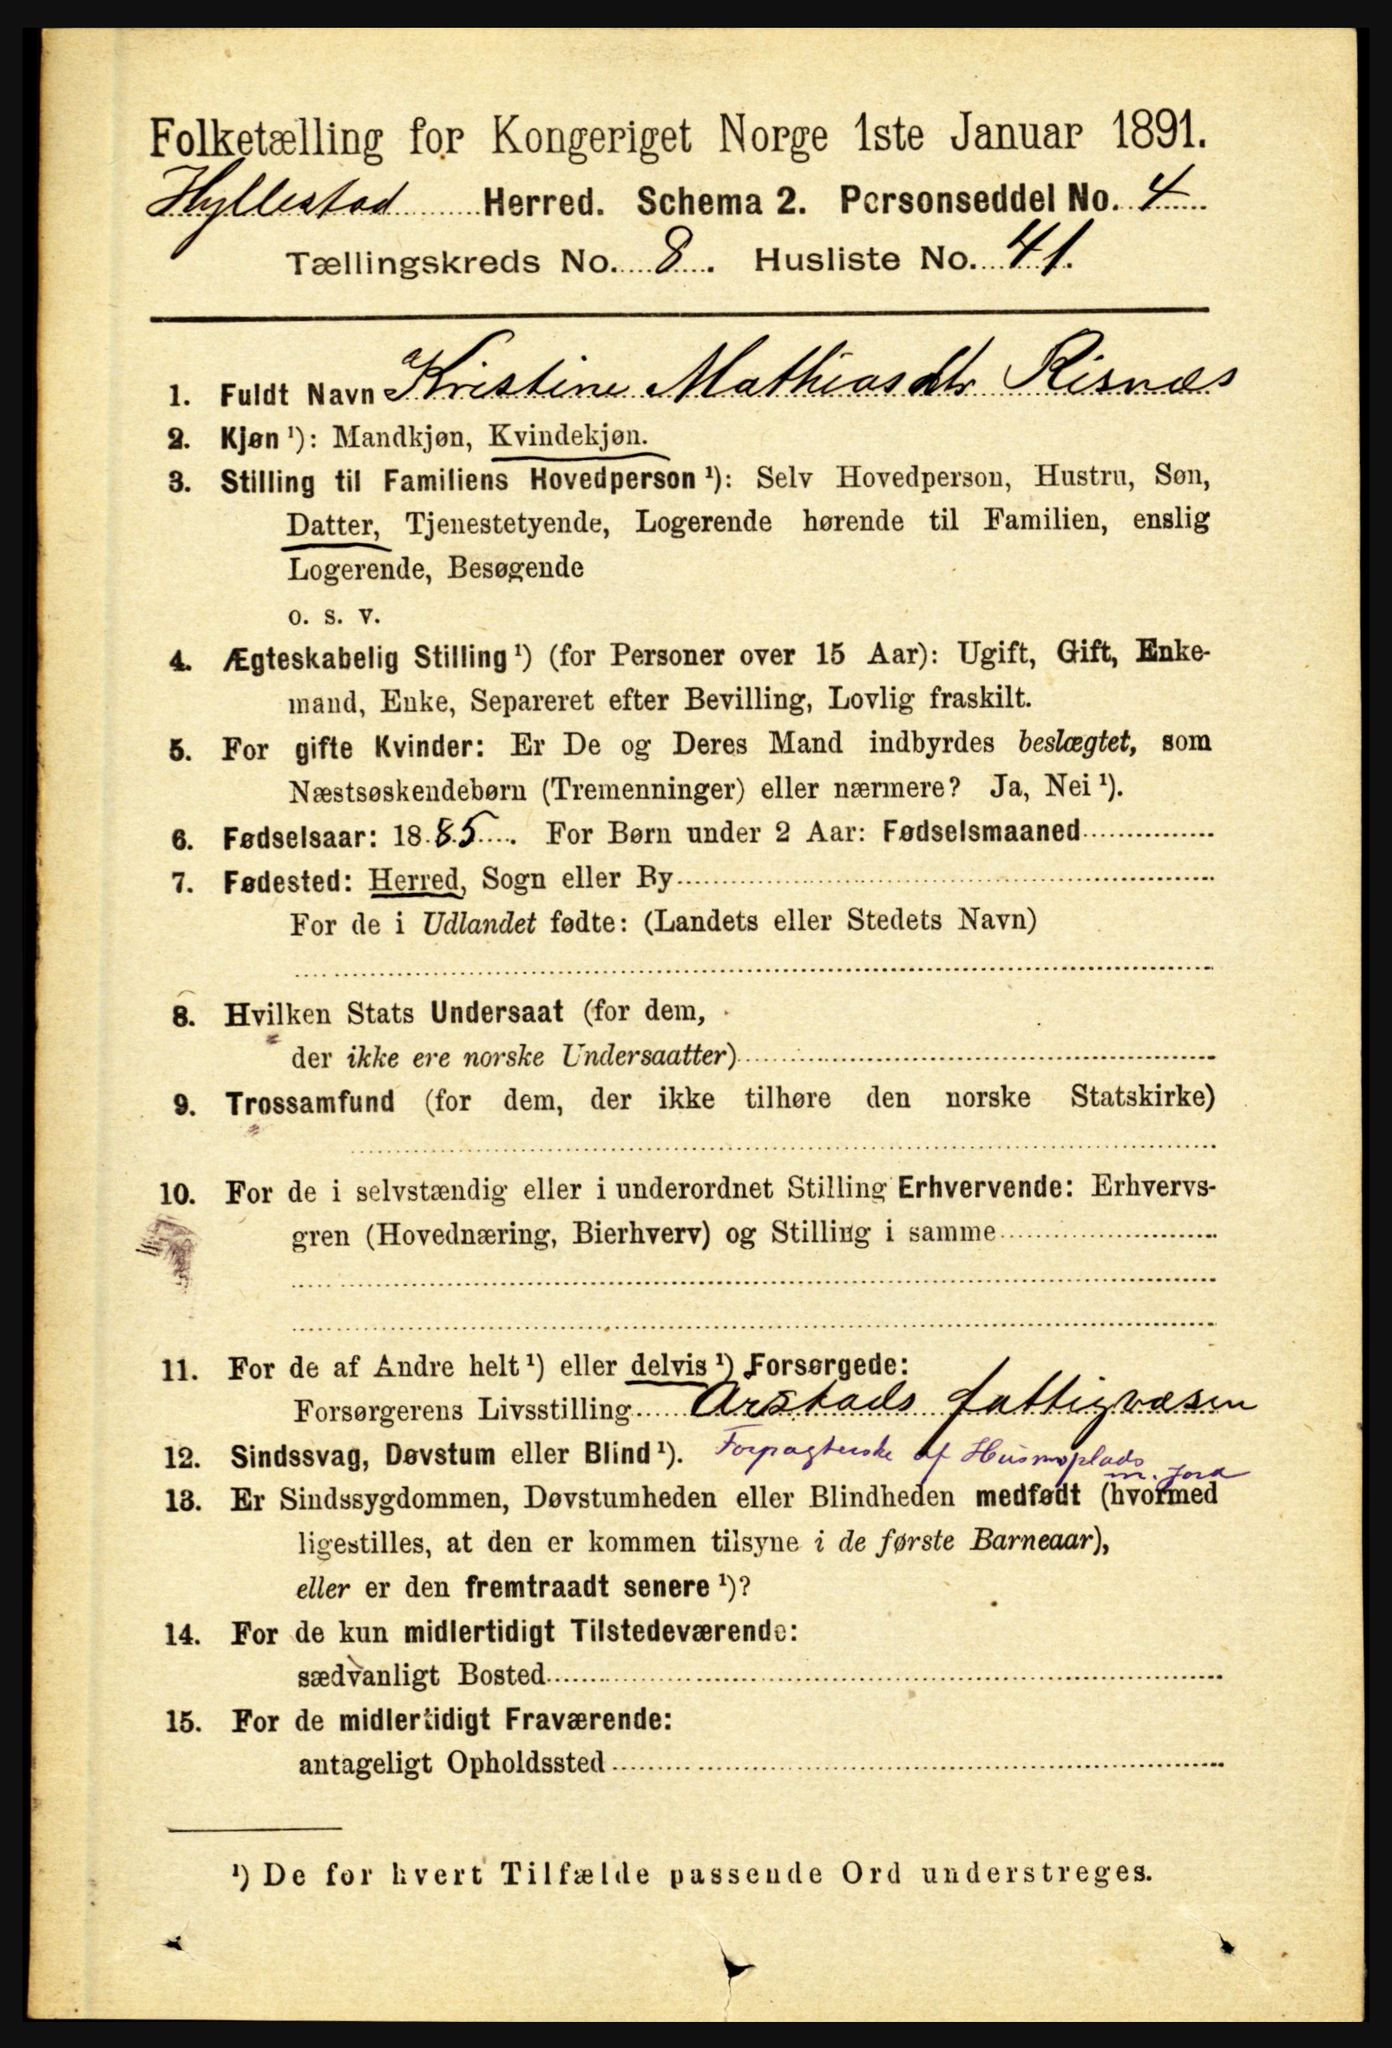 Folketælling for Kongeriget Norge 1ste Januar 1891.
Hyllestad Herred. Schema 2. Personseddel No. 4
Tællingskreds No. 8. Husliste No. 41.
1. Fuldt Navn Kristine Mathiasdtr Risnæs
2. Kjøn ¹): Mandkjøn, Kvindekjøn.
3. Stilling til Familiens Hovedperson ¹): Selv Hovedperson, Hustru, Søn,
Datter, Tjenestetyende, Logerende hørende til Familien, enslig
Logerende, Besøgende
o. s. v.
4. Ægteskabelig Stilling ¹) (for Personer over 15 Aar): Ugift, Gift, Enke-
mand, Enke, Separeret efter Bevilling, Lovlig fraskilt.
5. For gifte Kvinder: Er De og Deres Mand indbyrdes beslægtet, som
Næstsøskendebørn (Tremenninger) eller nærmere? Ja, Nei ¹).
6. Fødselsaar: 1885. For Børn under 2 Aar: Fødselsmaaned
7. Fødested: Herred, Sogn eller By
For de i Udlandet fødte: (Landets eller Stedets Navn)
8. Hvilken Stats Undersaat (for dem,
der ikke ere norske Undersaatter)
9. Trossamfund (for dem, der ikke tilhøre den norske Statskirke)
10. For de i selvstændig eller i underordnet Stilling Erhvervende: Erhvervs-
gren (Hovednæring, Bierhverv) og Stilling i samme
11. For de af Andre helt ¹) eller delvis ¹) Forsørgede:
Forsørgerens Livsstilling Arstads fattigvæsen
12. Sindssvag, Døvstum eller Blind ¹). Forpagterske af Husmoplads
m. Jord
13. Er Sindssygdommen, Døvstumheden eller Blindheden medfødt (hvormed
ligestilles, at den er kommen tilsyne i de første Barneaar),
eller er den fremtraadt senere ¹)?
14. For de kun midlertidigt Tilstedeværende:
sædvanligt Bosted
15. For de midlertidigt Fraværende:
antageligt Opholdssted
¹) De for hvert Tilfælde passende Ord understreges.